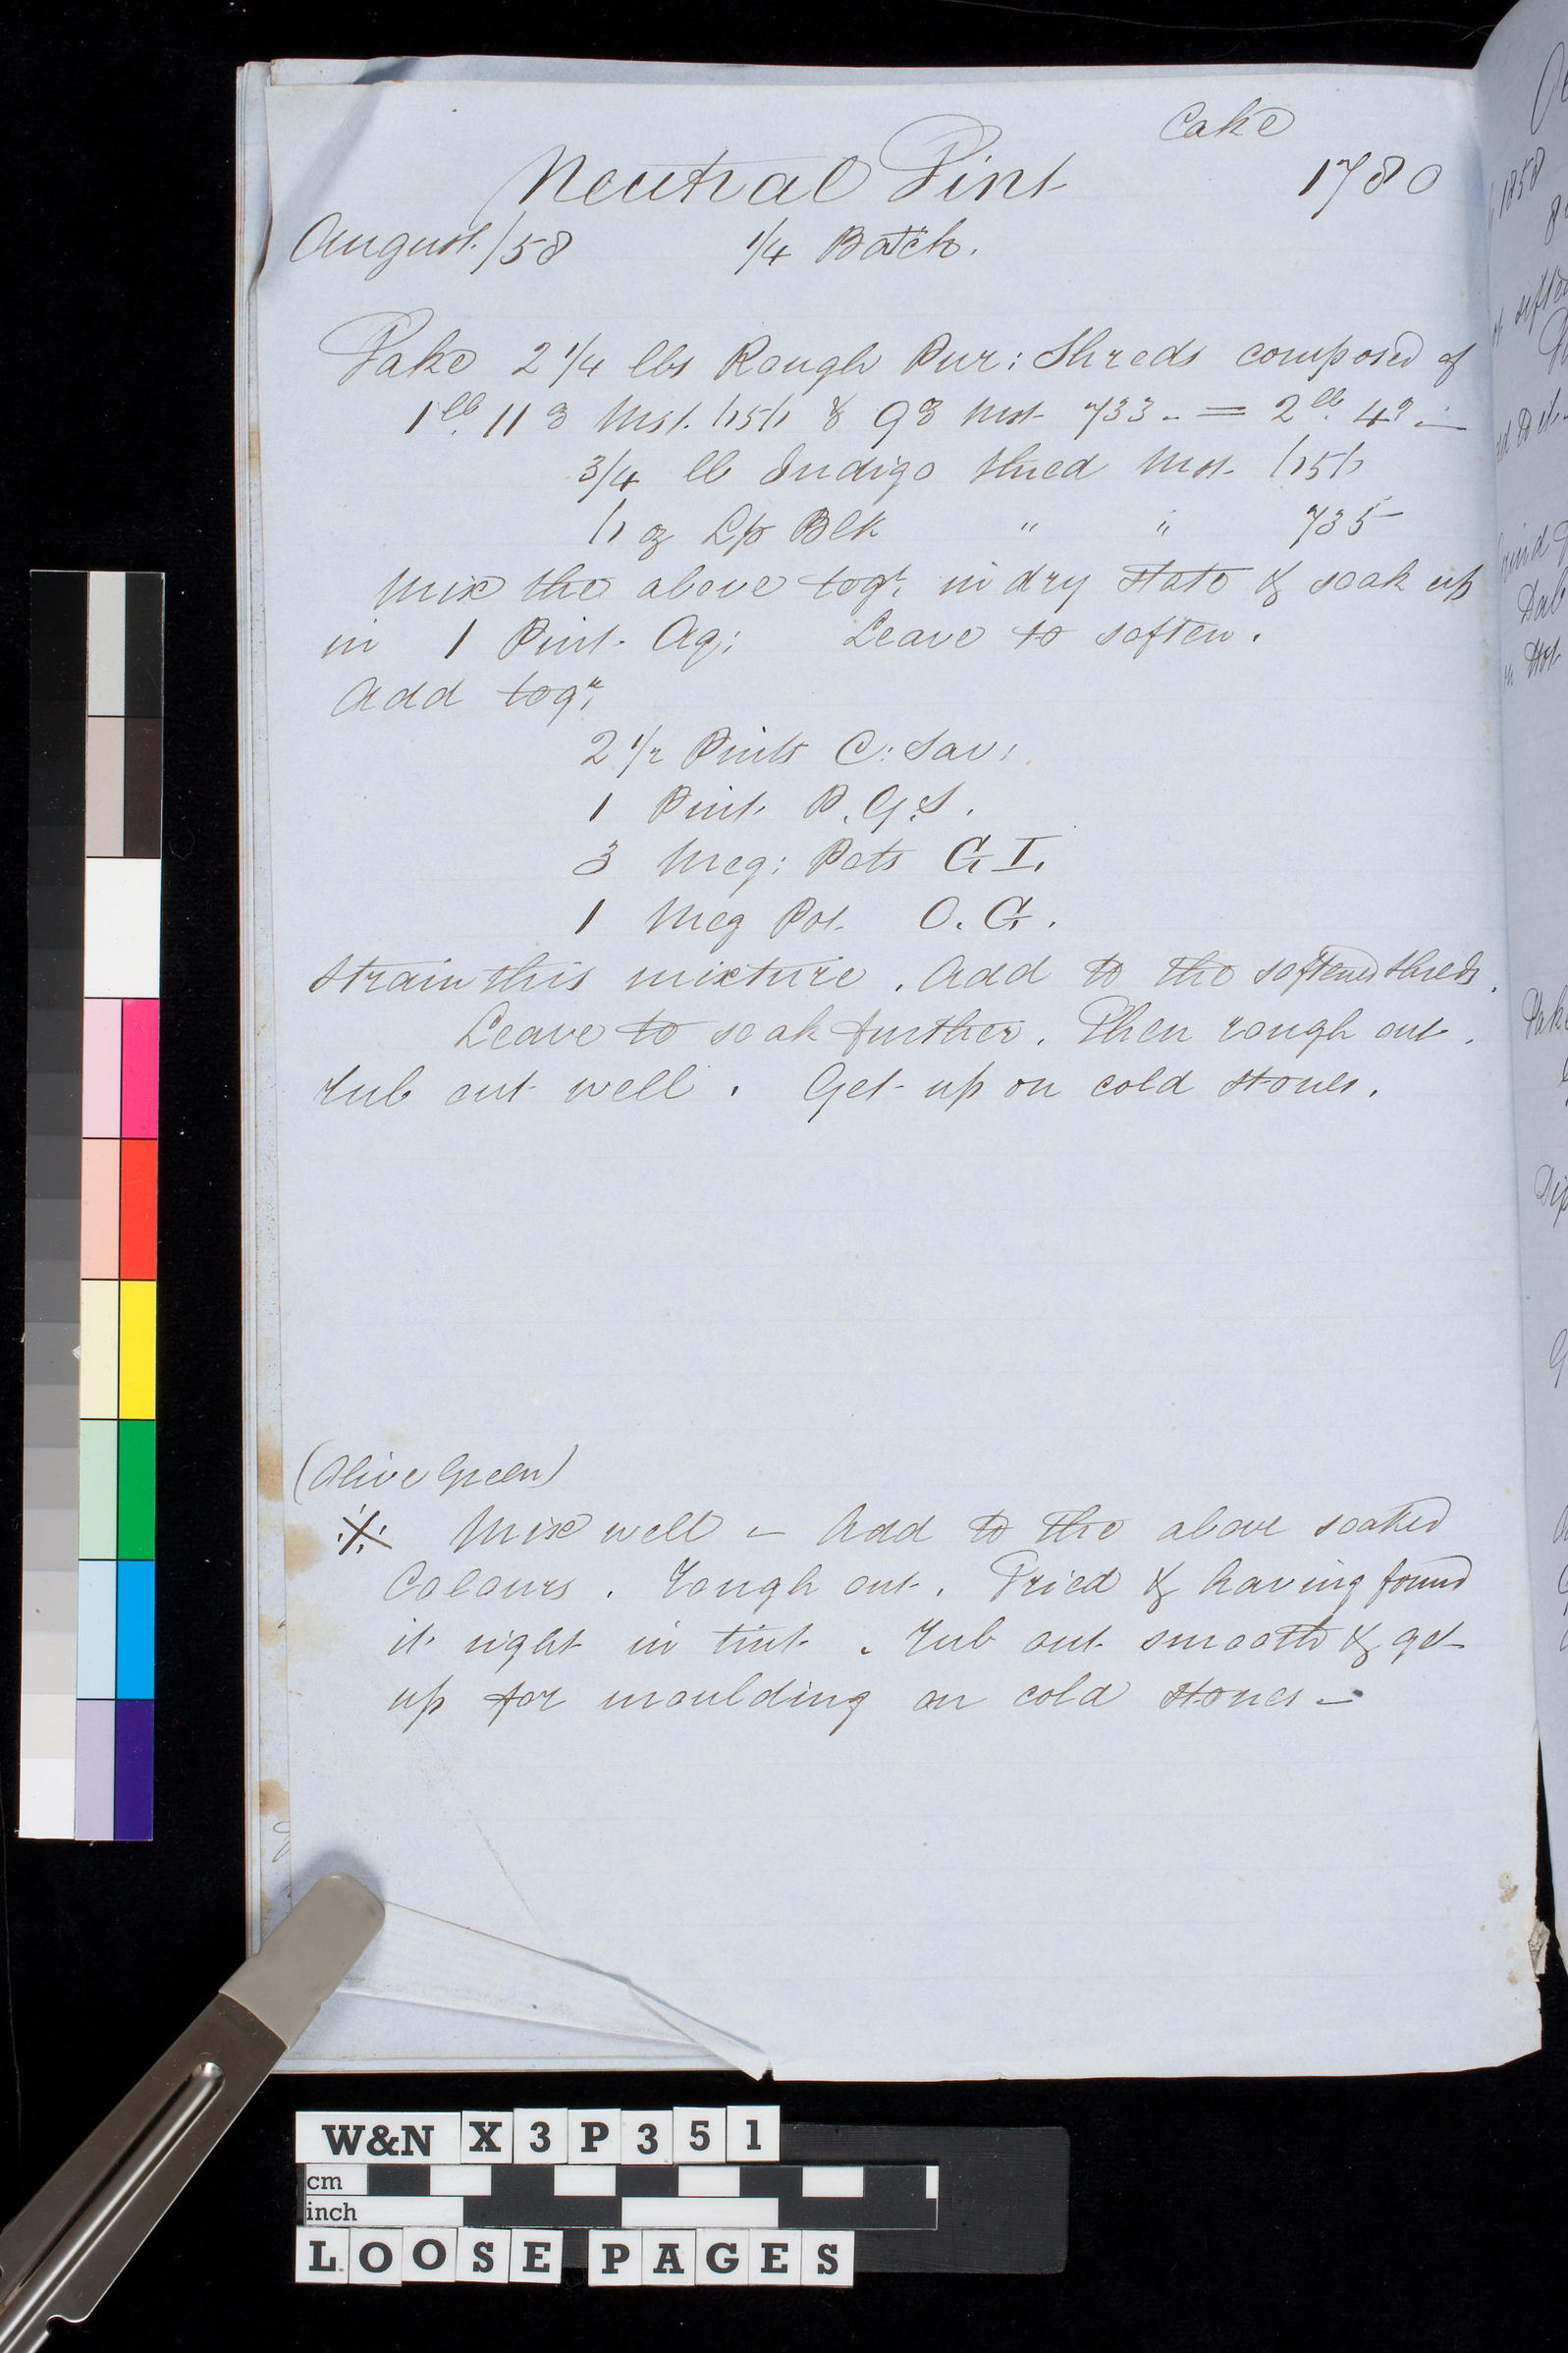 Cake
Neutral Tint 1780
August/58 1/4 Batch.
Take 2 1/4 lbs Rough Pur: Shreds composed of
1lb. 11 ʒ Mst. & 9ʒ Mst 733 - = 2lb. 4ʒ
3/4 lb Indigo Shred Mst.
Lp Blk " " 735
Mix the above togr. in dry state & soak up
in 1 Pint Aq: Leave to soften.
Add togr.
2 1/2 Pints C: Sav:
1 Pint P.G.S.
3 Meg: Pots G I.
1 Meg Pot O.G.
Strain this mixture. Add to the softened shreds.
Leave to soak further. Then rough out.
Rub out well. Get up on cold stones.
(Olive Green)
※ Mix well - Add to the above soaked
Colours. Rough out. Tried & having found
it right in tint. Rub out smooth & get
up for moulding on cold stones -
W&N X3P351
cm
inch
LOOSE PAGES